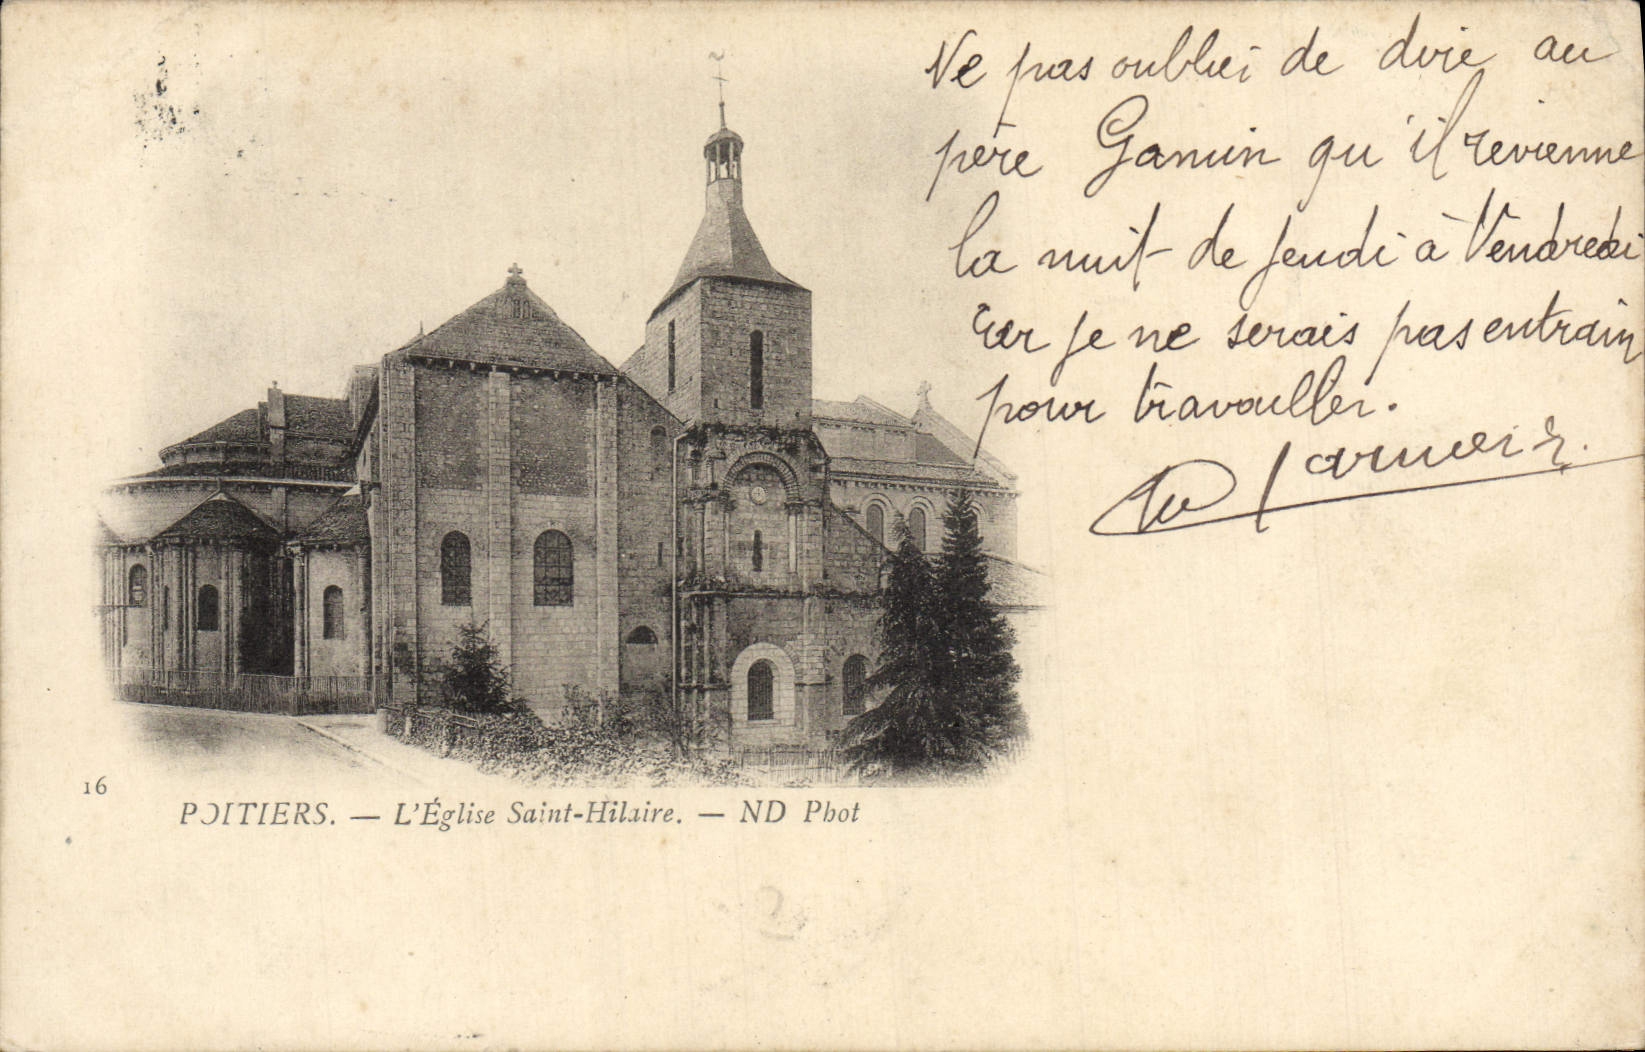 Ne pas oublier de dire au
père Gamin qu'il revienne
la nuit de Jeudi à Vendredi
car je ne serais pas entrain
pour travailler.
16
POITIERS. — L'Église Saint-Hilaire. — ND Phot